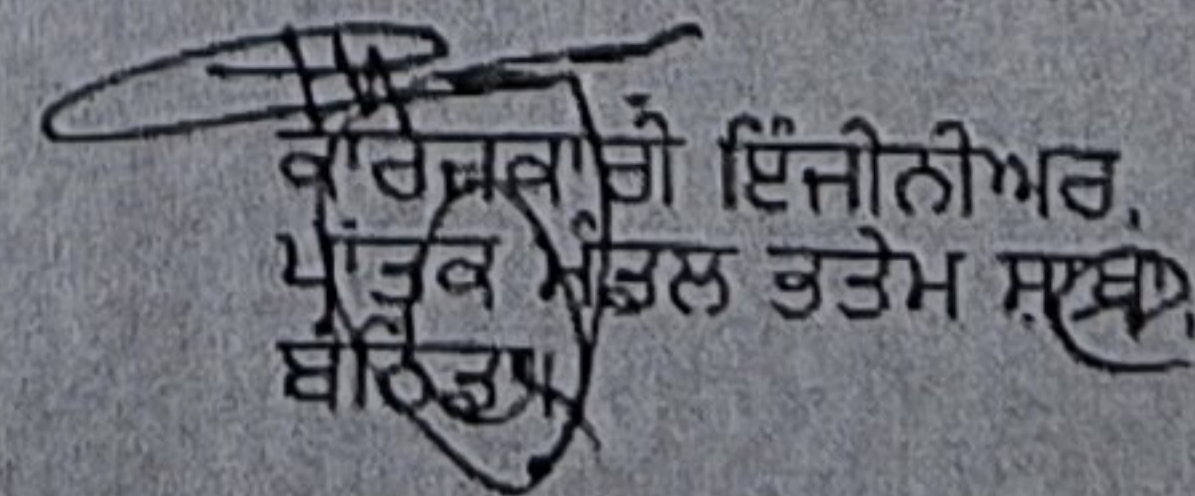 ਕਾਰਜਕਾਰੀ ਇੰਜੀਨੀਅਰ,
ਪ੍ਰਾਂਤਕ ਮੰਡਲ ਭਤੇਮ ਸ਼ਾਖਾ,
ਬਠਿੰਡਾ